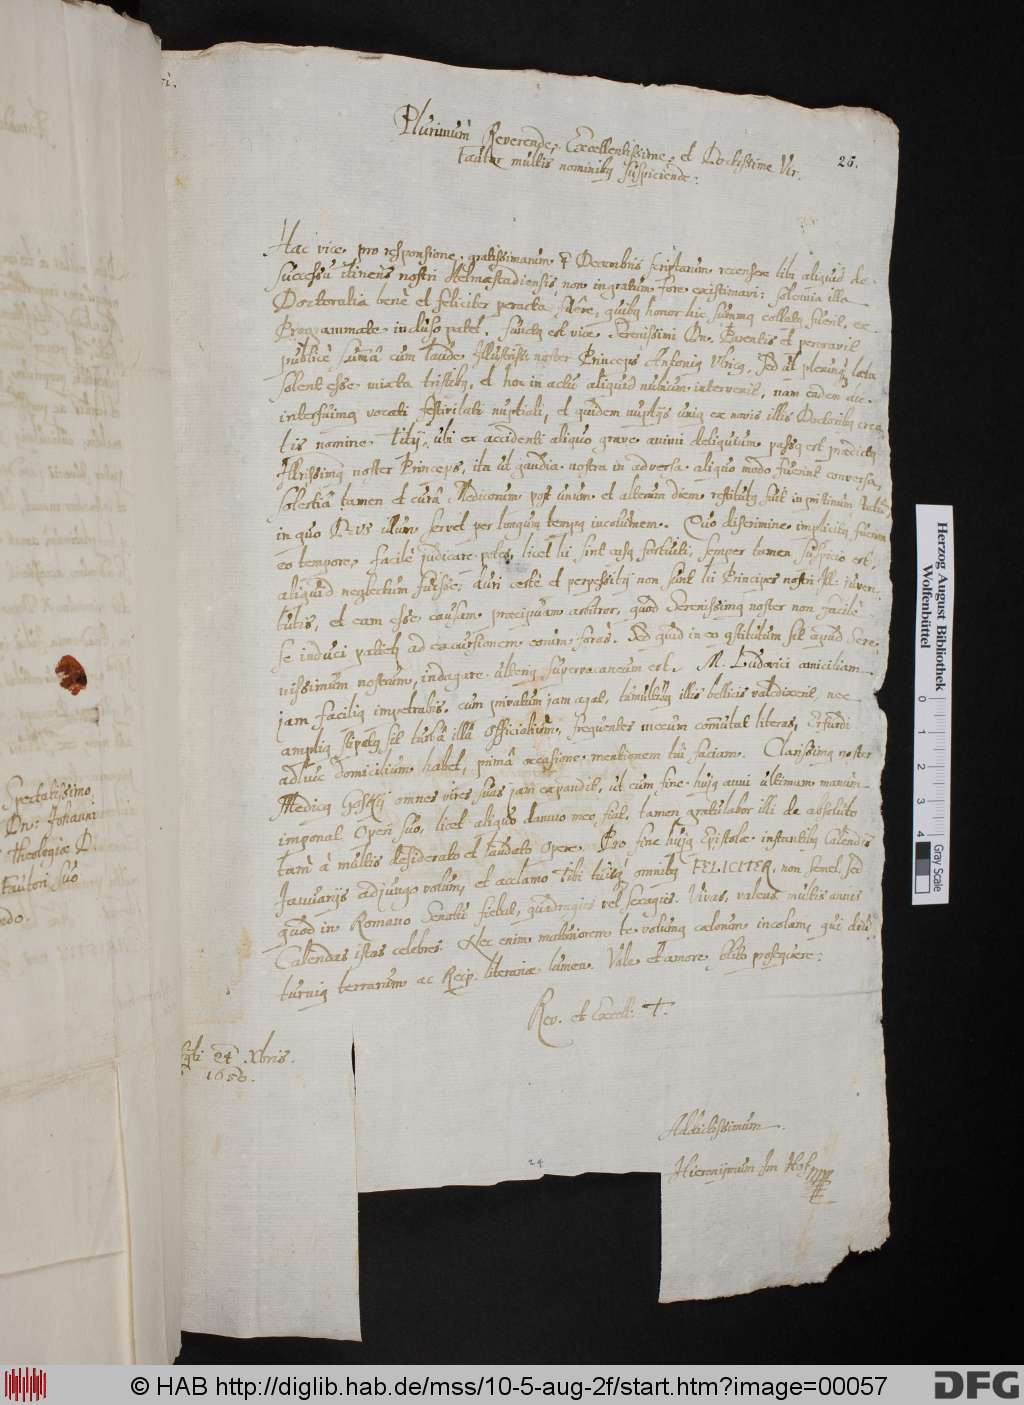 Plurimum Reverende, Excellentissime, et Doctissime Vir.
Fautor multis nominibq suspiciende:
26.
Hac vice pro responsione gratissimarum Decembris scriptarum recensere tibi aliquid de
successu itineris nostri Helmstadiensis non ingratum fore existimavi: solemnia illa
Doctoralia benè et feliciter peracta fuêre, quibq honor hic summq collatq fuerit, ex
Programmate incluso patet, functq est vice Serenissimi Dn. Parentis et peroravit
publicè summâ cum laude Illustriss. noster Princeps Antoniq Ulricq, Sed ut plerunq laeta
solent esse mixta tristibq, et hoc in actu aliquid nubium intervenit, nam eadem die
interfuimq vocati festivitati nuptiali, et quidem nuptijs uniq ex novis illis Doctoribq crea
tis nomine Titij, ubi ex accidenti aliquo grave animi deliquium passq est praedictq
Illrissimq noster Princeps, ita ut gaudia nostra in adversa aliquo modo fuerint conversa,
solertiâ tamen et curâ Medicorum post unum et alterum diem restitutq fuit in pristinum
in quo Deus illum servet per longum tempq incolumem. Quo discrimine implicitq fuerim
eo tempore, facilè judicare potes, licet hi sint casq fortuiti, semper tamen suspicio est,
aliquid neglectum fuisse; duri certè et perpessitij non sunt hi Principes nostri Ill. juven
tutis, et eam esse causam praecipuam arbitror, quod Serenissimq noster non facilè
se induci patietq ad excursionem eorum foràs. Sed quid in eo qstitutum sit apud Sere
nissimum nostrum, indagare ulteriq supervacaneum est. M. Ludovici amicitiam
jam faciliq impetrabis, cum privatum jam agat, tumultibq illis bellicis valedixerit, nec
ampliq stipatq sit turbâ illâ officialium, frequenter mecum commutat literas, Erfurdi
adhuc domicilium habet, primâ occasione mentionem tui faciam. Clarissimq noster
Medicq Goskij omnes vires suas jam expandit, ut cum fine hujq anni ultimam manum
imponat Operi suo, licet aliquo damno meo fiat, tamen gratulabor illi de absoluto
tam à multis desiderato et laudato opere. Pro fine hujq Epistolae instantibq Calendis
Januarijs adjungo votum, et acclamo Tibi tuisq omnibq FELICITER, non semel, sed
quod in Romano Senatu fiebat, quadragies vel sexagies. Vivas, valeas multis annis
Calendas istas celebres. Nec enim maturiorem te volumq coelorum incolam, qui diu
turniq terrarum ac Reip. literariae lumen. Vale et amore solito proseqvere:
Rev. et Excell: T.
24 Xbris.
1656.
Addictissimum
Hieronijmum Im Hof
24
Spectatissimo,
Dn: Johanni
Theologiae D.
Fautori suo
ndo.
Herzog August Bibliothek
Wolfenbüttel
0 1 2 3 4
Gray Scale
© HAB http://diglib.hab.de/mss/10-5-aug-2f/start.htm?image=00057
DFG